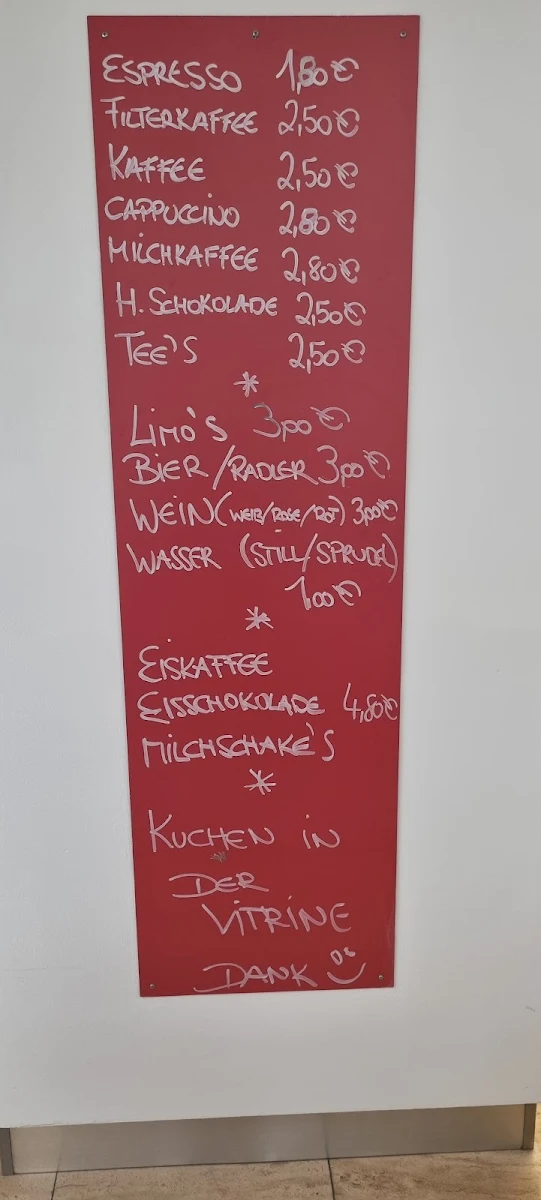 ESPRESSO 1,80€
FILTERKAFFEE 2,50€
KAFFEE 2,50€
CAPPUCCINO 2,80€
MILCHKAFFEE 2,80€
H. SCHOKOLADE 2,50€
TEE'S 2,50€
*
LIMO'S 3,00€
BIER/RADLER 3,00€
WEIN (WEIß/ROSE/ROT) 3,00€
WASSER (STILL/SPRUDEL)
1,00€
*
EISKAFFEE
EISSCHOKOLADE 4,50€
MILCHSCHAKE'S
*
KUCHEN IN
DER
VITRINE
DANK